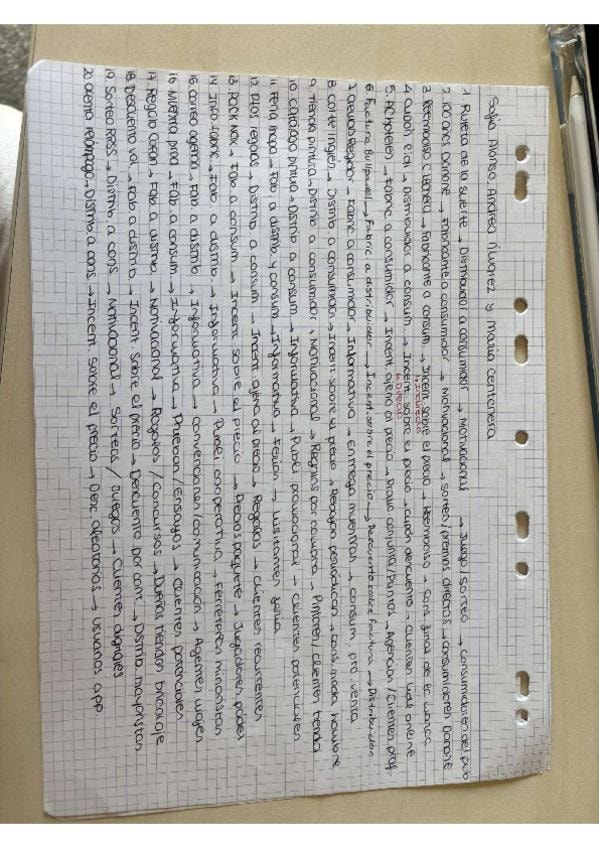 Sofía Alonso, Andrea Álvarez y María Centenera
1. Ruleta de la suerte → Distribuidor a consumidor → Motivacional → Juego sorteo → consumidores del pub
2. 100 años Danone → Fabricante a consumidor → Motivacional → Sorteo/premios directos → consumidores Danone
3. Reembolso cremera → Fabricante a consum. → Incent. sobre el precio → Reembolso → Cons.
↳ Indirecto
4. Cupón eci → Distribuidor a consum → Incent. sobre el precio → cupón descuento → clientes online
↳ Directo
5. AC hoteles → Fabric a consumidor → Incent. ajeno al precio → Promo conjunta/Puntos → Agencias/clientes prof.
6. Factura Bullpadel → Fabric. a distribuidor → Incent. sobre el precio → Descuento sobre factura → Distribución
7. Regalar → Fabric a consumidor → Informativa → Entrega muestras → Consum. pto. venta
8. Corte inglés → Distrib. a consumidor → Incent sobre el precio → Rebajas periódicas → cons. moda hombre
9. Tienda pintura → Distrib a consumidor → Motivacional → Regalos por compra → Pintores/clientes tienda
10. Catálogo pintura → Distrib a consum → Informativa → Public promocional → Clientes potenciales
11. Feria → Fab a distrib y consum → Informativa → Ferias → Visitantes feria
12. regalos → Distrib. a consum → Incent. ajeno al precio → Regalos → clientes recurrentes
13. Pack Nox → Fab. a consum → Incent sobre el precio → Precios paquete → Jugadores pádel
14. Info fabric → Fab. a distrib. → Informativa → Public cooperativa → Ferreteros minoristas
15. Correo agencia → Fab a distrib → Informativa → Convenciones/comunicación → Agentes viajes
16. Muestra prod → Fab. a consum → Informativa → Pruebas/Ensayos → clientes potenciales
17. Regalo → Fab a distrib. → Motivacional → Regalos/Concursos → Dueños tiendas bricolaje
18. Descuento vol → Fab. a distrib → Incent. sobre el precio → Descuento por cant. → Distrib mayoristas
19. Sorteo RRSS → Distrib. a cons → Motivacional → Sorteos/Juegos → Clientes digitales
20. Oferta relámpago → Distrib. a cons. → Incent. sobre el precio → Desc. aleatorios → Usuarios app